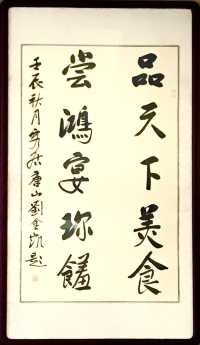 品天下美食
尝鴻宴珍饈
壬辰秋月寄居唐山劉金凱題